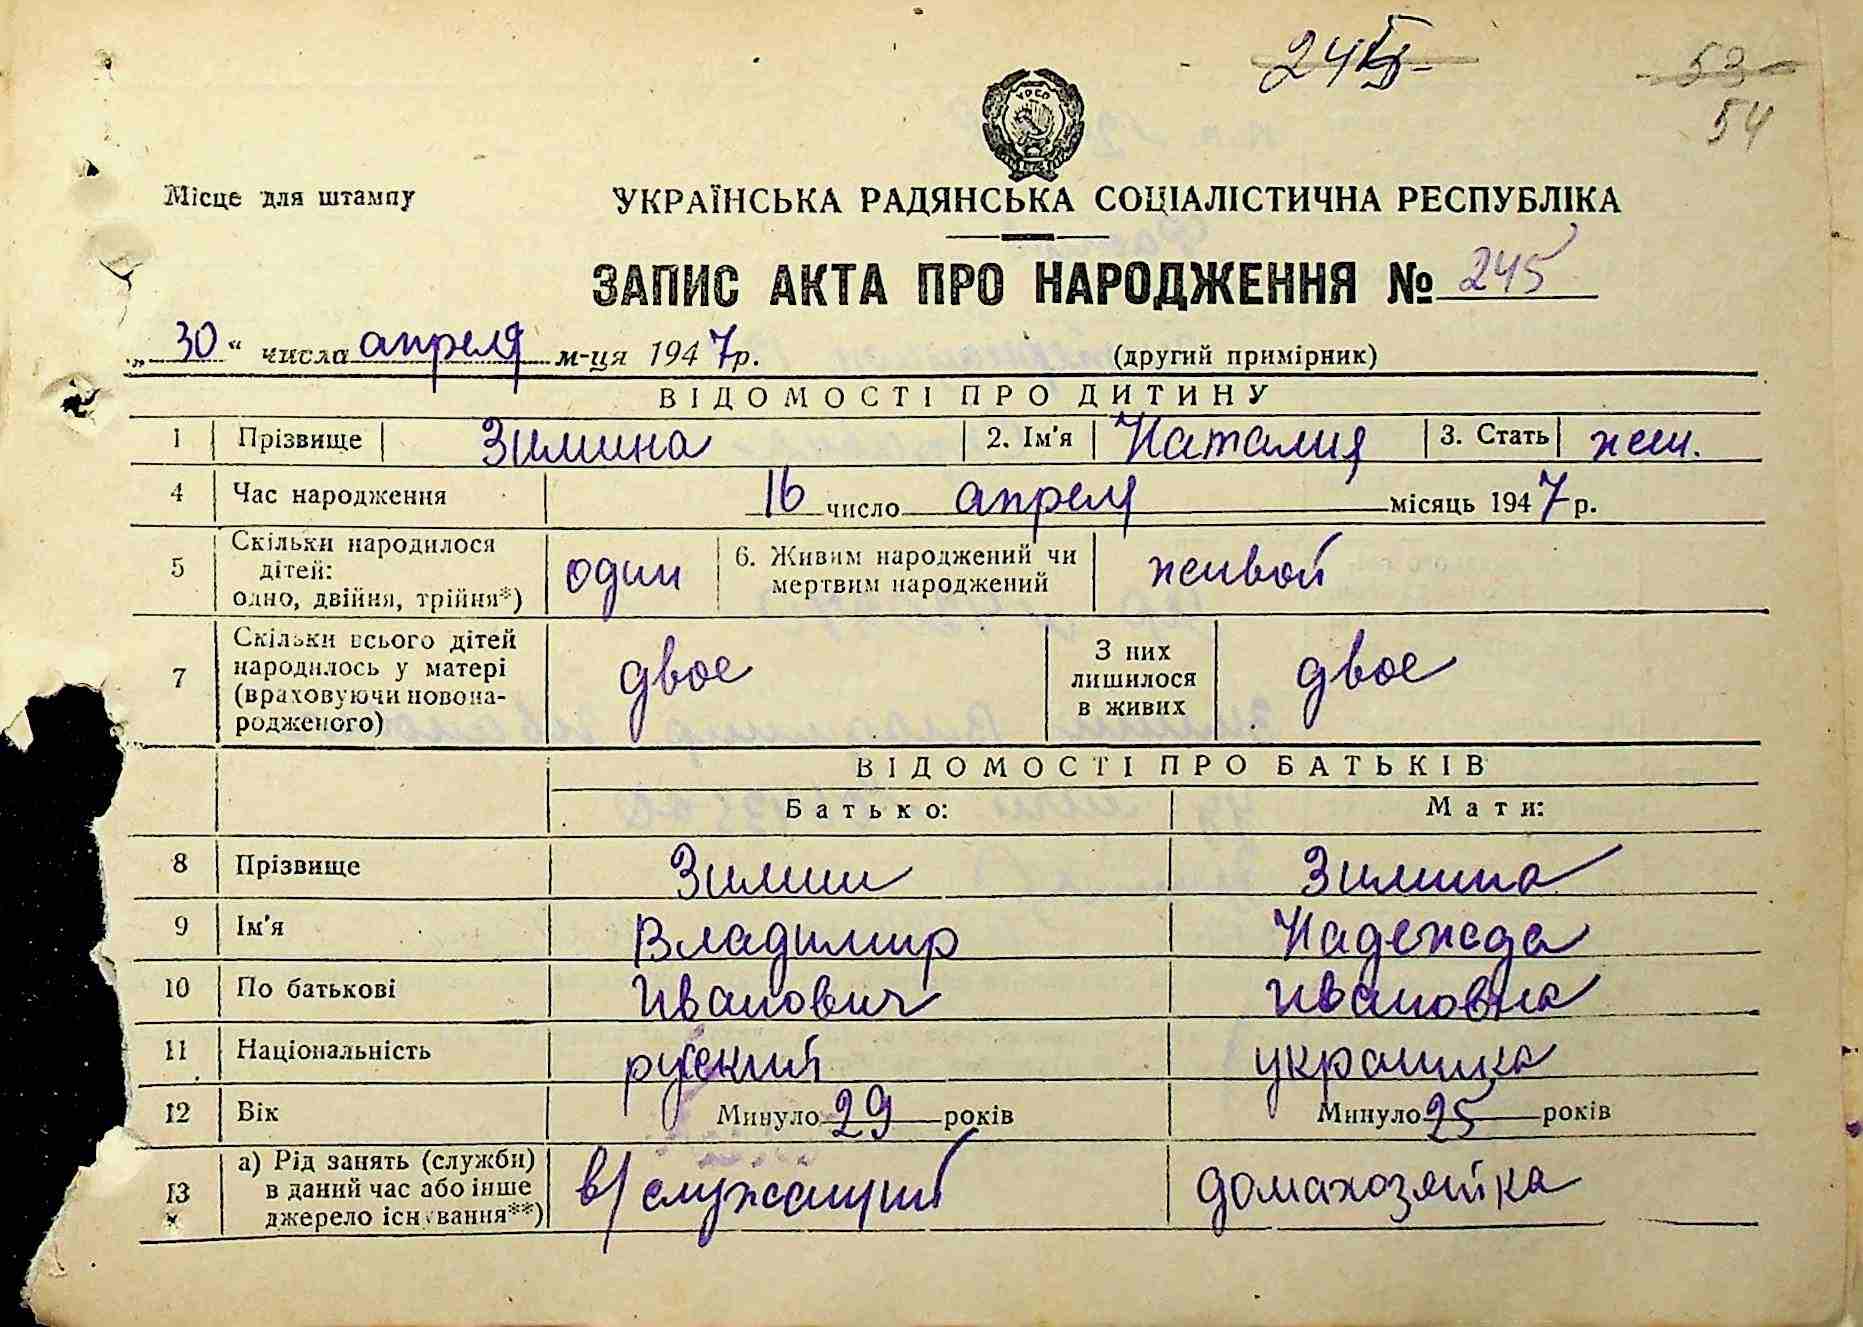 53
54
Місце для штампу
УКРАЇНСЬКА РАДЯНСЬКА СОЦІАЛІСТИЧНА РЕСПУБЛІКА
ЗАПИС АКТА ПРО НАРОДЖЕННЯ № 245
„30“ числа апреля м-ця 1947 р. (другий примірник)
ВІДОМОСТІ ПРО ДИТИНУ
1 Прізвище Зимина 2. Ім'я Наталия 3. Стать жен.
4 Час народження 16 число апреля місяць 1947 р.
5 Скільки народилося дітей: одно, двійня, трійня*) один 6. Живим народжений чи мертвим народжений живой
7 Скільки всього дітей народилось у матері (враховуючи новонародженого) двое З них лишилося в живих двое
ВІДОМОСТІ ПРО БАТЬКІВ
Батько: Мати:
8 Прізвище Зимин Зимина
9 Ім'я Владимир Надежда
10 По батькові Иванович Ивановна
11 Національність русский украинка
12 Вік Минуло 29 років Минуло 25 років
13 а) Рід занять (служби) в даний час або інше джерело існування**) в/служащий домахозяйка